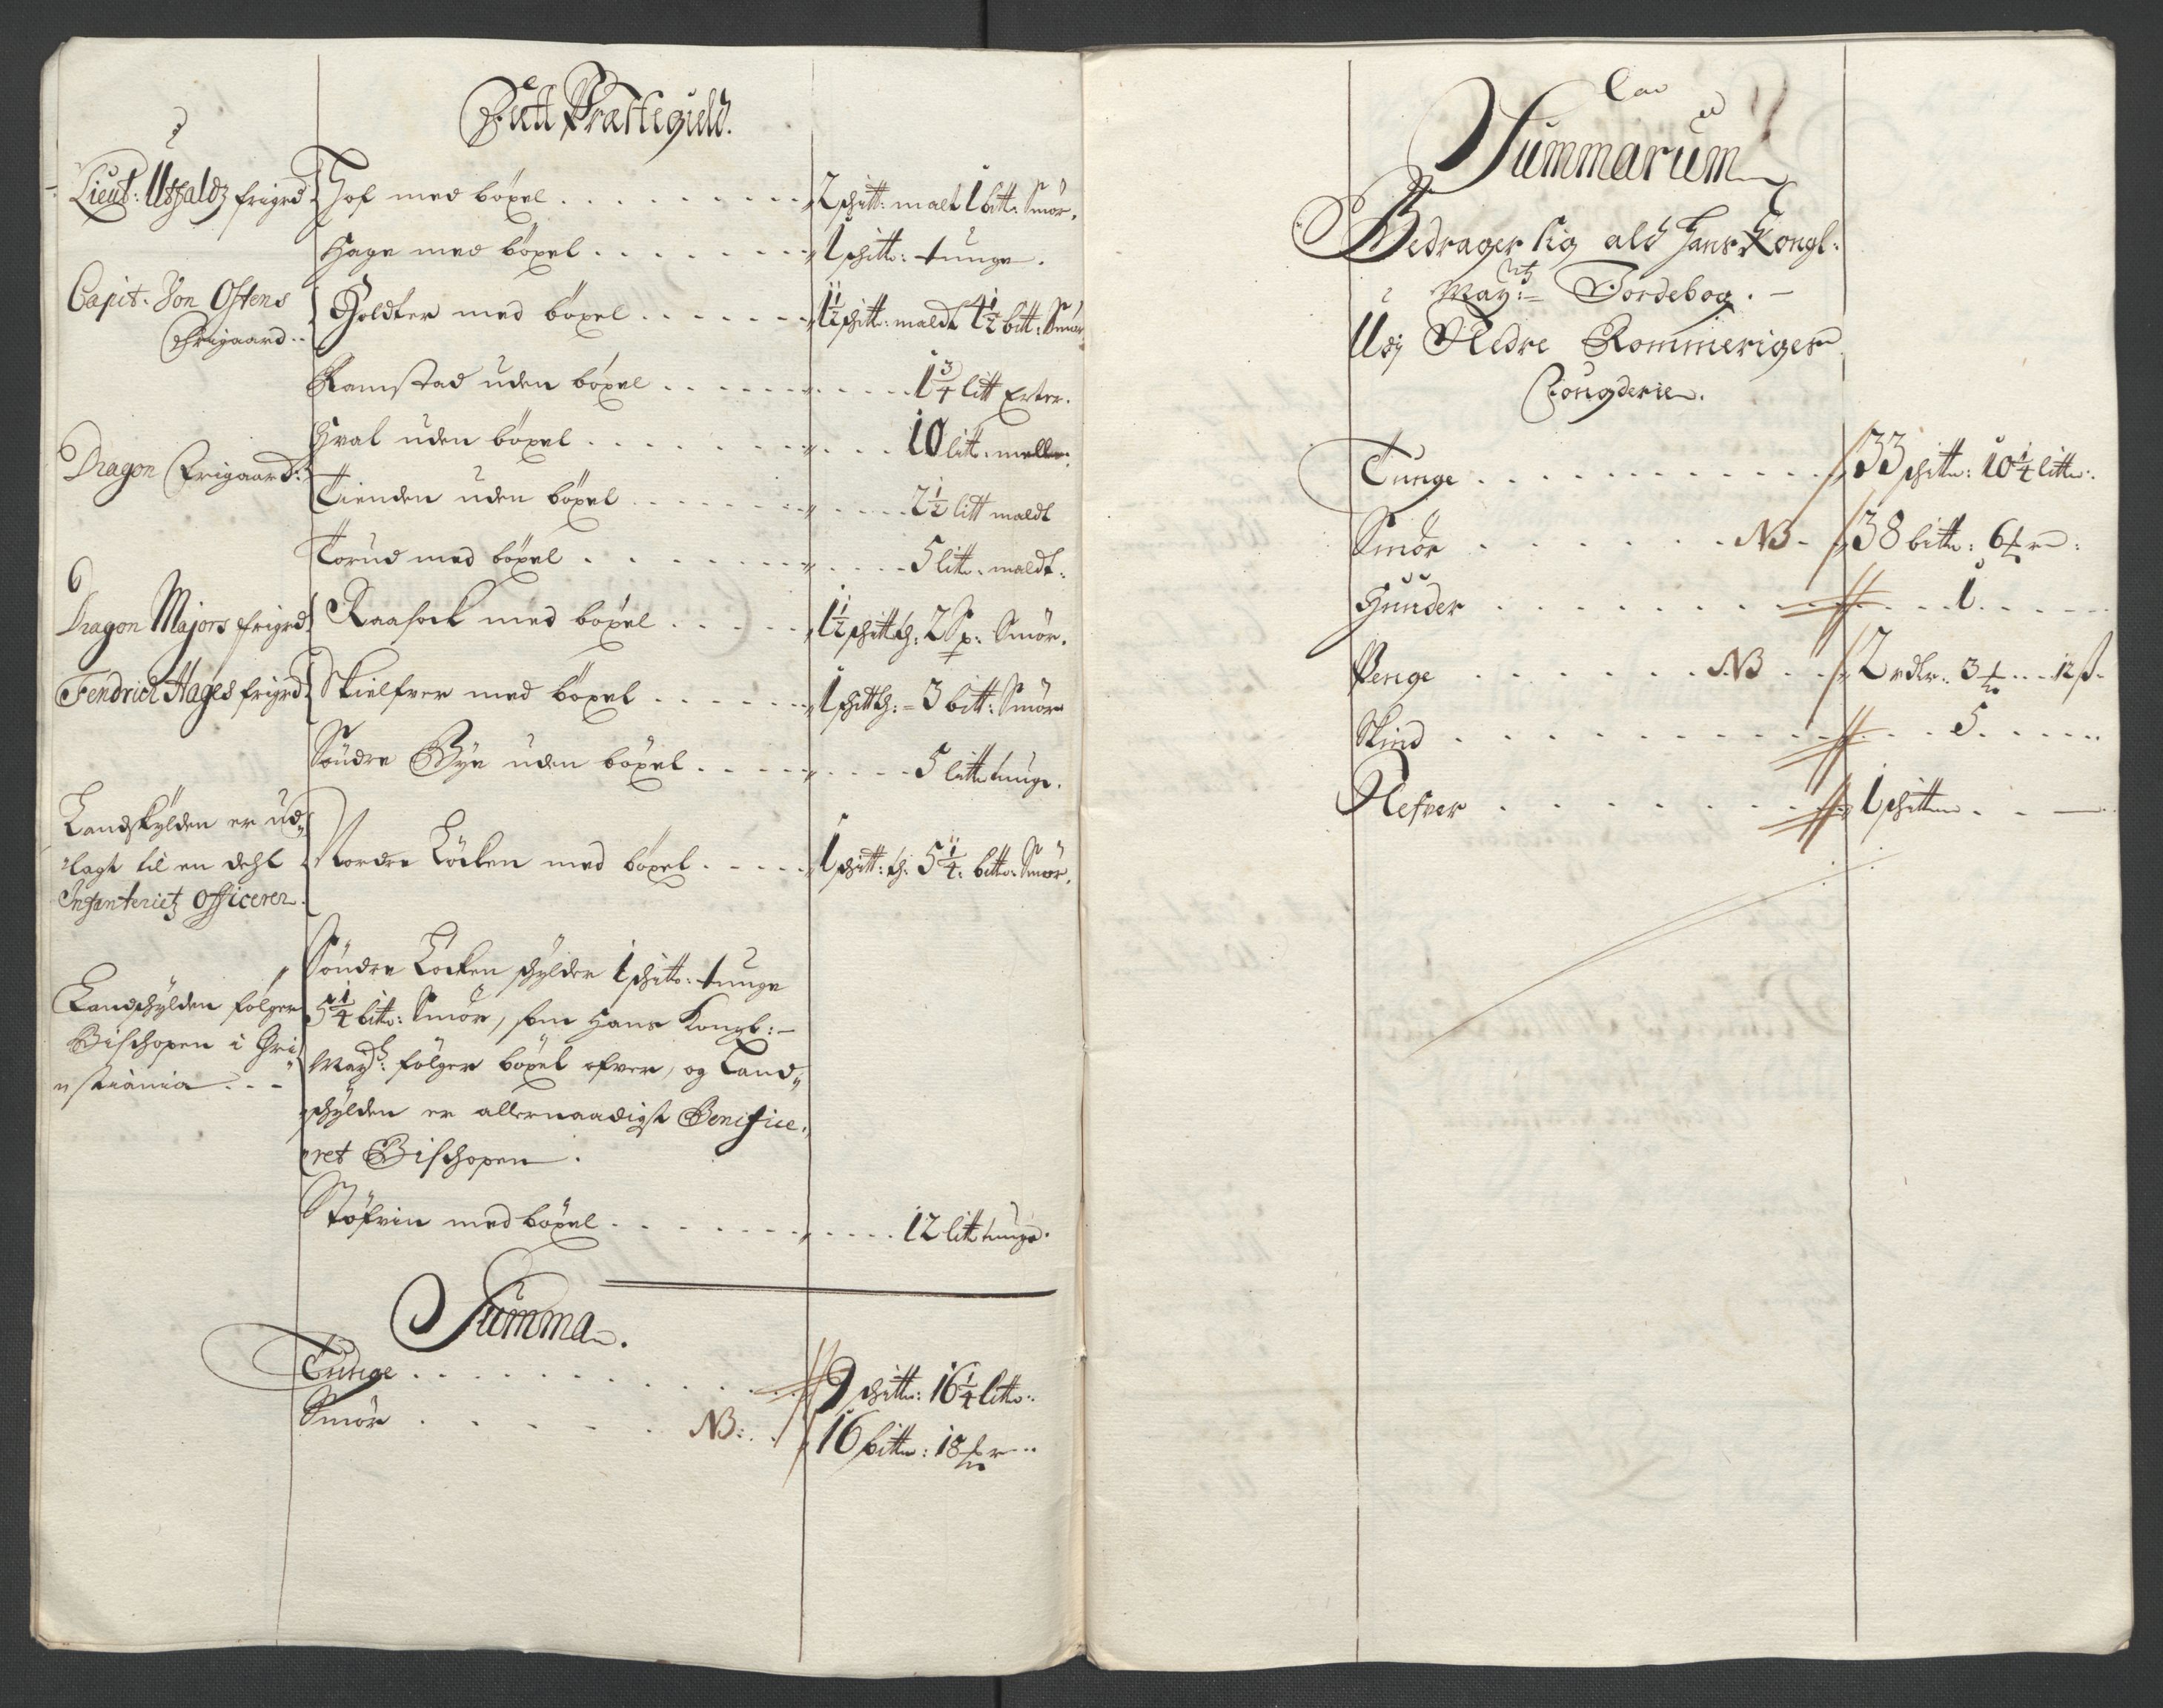 Fett Præstegield.
Lieut: Utfaldz frigrd Hof med böxel . . . . . . . . . 2 schitt: malt 1 bitt: Smör.
Hage med böxel . . . . . . . 1 schitt: tunge.
Capit. Von Ostens Frigaard.. Holdter med böxel . . . . . . 1½ schitt: maldt 4½ bitt: Smör
Ramstad uden böxel . . . . . . . . . . . 1¾ litt Erter.
Hval uden böxel . . . . . . . . . . . 10 litt: mellen.
Dragon Frigaard: Tienden uden böxel . . . . . . . . . . . 2½ litt maldt
Torud med böxel . . . . . . . . . . . 5 litt: maldt:
Dragon Majors frigrd Raaholt med böxel . . . . . 1½ schitt th: 2 Sp: Smör.
Fendrich Hages frigrd Skielfver med böxel . . . . . . 1 schitt th: = 3 bitt: Smör
Söndre Bye uden böxel . . . . . . . . 5 litt tunge.
Landskylden er ud„
„lagt til en dehl
Infanterietz Officerer.
Nordre Löcken med böxel . . . . . 1 schitt: th: 5¼: bitt: Smör.
Landschylden følger
Bischopen i Chri
„stiania . . -
Söndre Löcken schylder 1 schitt: tunge
5¼ bitt: Smör, som Hans Kongl: -
Maytz: følger böxel ofver, og Land„
„schylden er allernaadigst Benefice„
„ret Bischopen.
Stöfrin med böxel . . . . . . . . . . . 12 litt tunge.
Summa.
Tunge . . . . . . . . . . . 9 schitt: 16¼ litt:.
Smör . . . . . . NB: . . 16 bitt: 18 mrk..
Summarum
Bedrager sig ald Hans Kongl:
Maytz: Jordebog. -
Udj Nedre Rommeriges
Fougderie.
Tunge . . . . . . . . . . . . 33 schitt: 10¼ litt:.
Smör . . . . . . NB - 38 bitt: 6 mrk:
Huuder . . . . . . . . . . . . 1 . . . .
Penge . . . . . . NB . . 2 rdlr: 3 mrk . . . 12 ß.
Skind . . . . . . . . . . . . 5 . . . . .
Nefver . . . . . . . . 1 schitt . . —